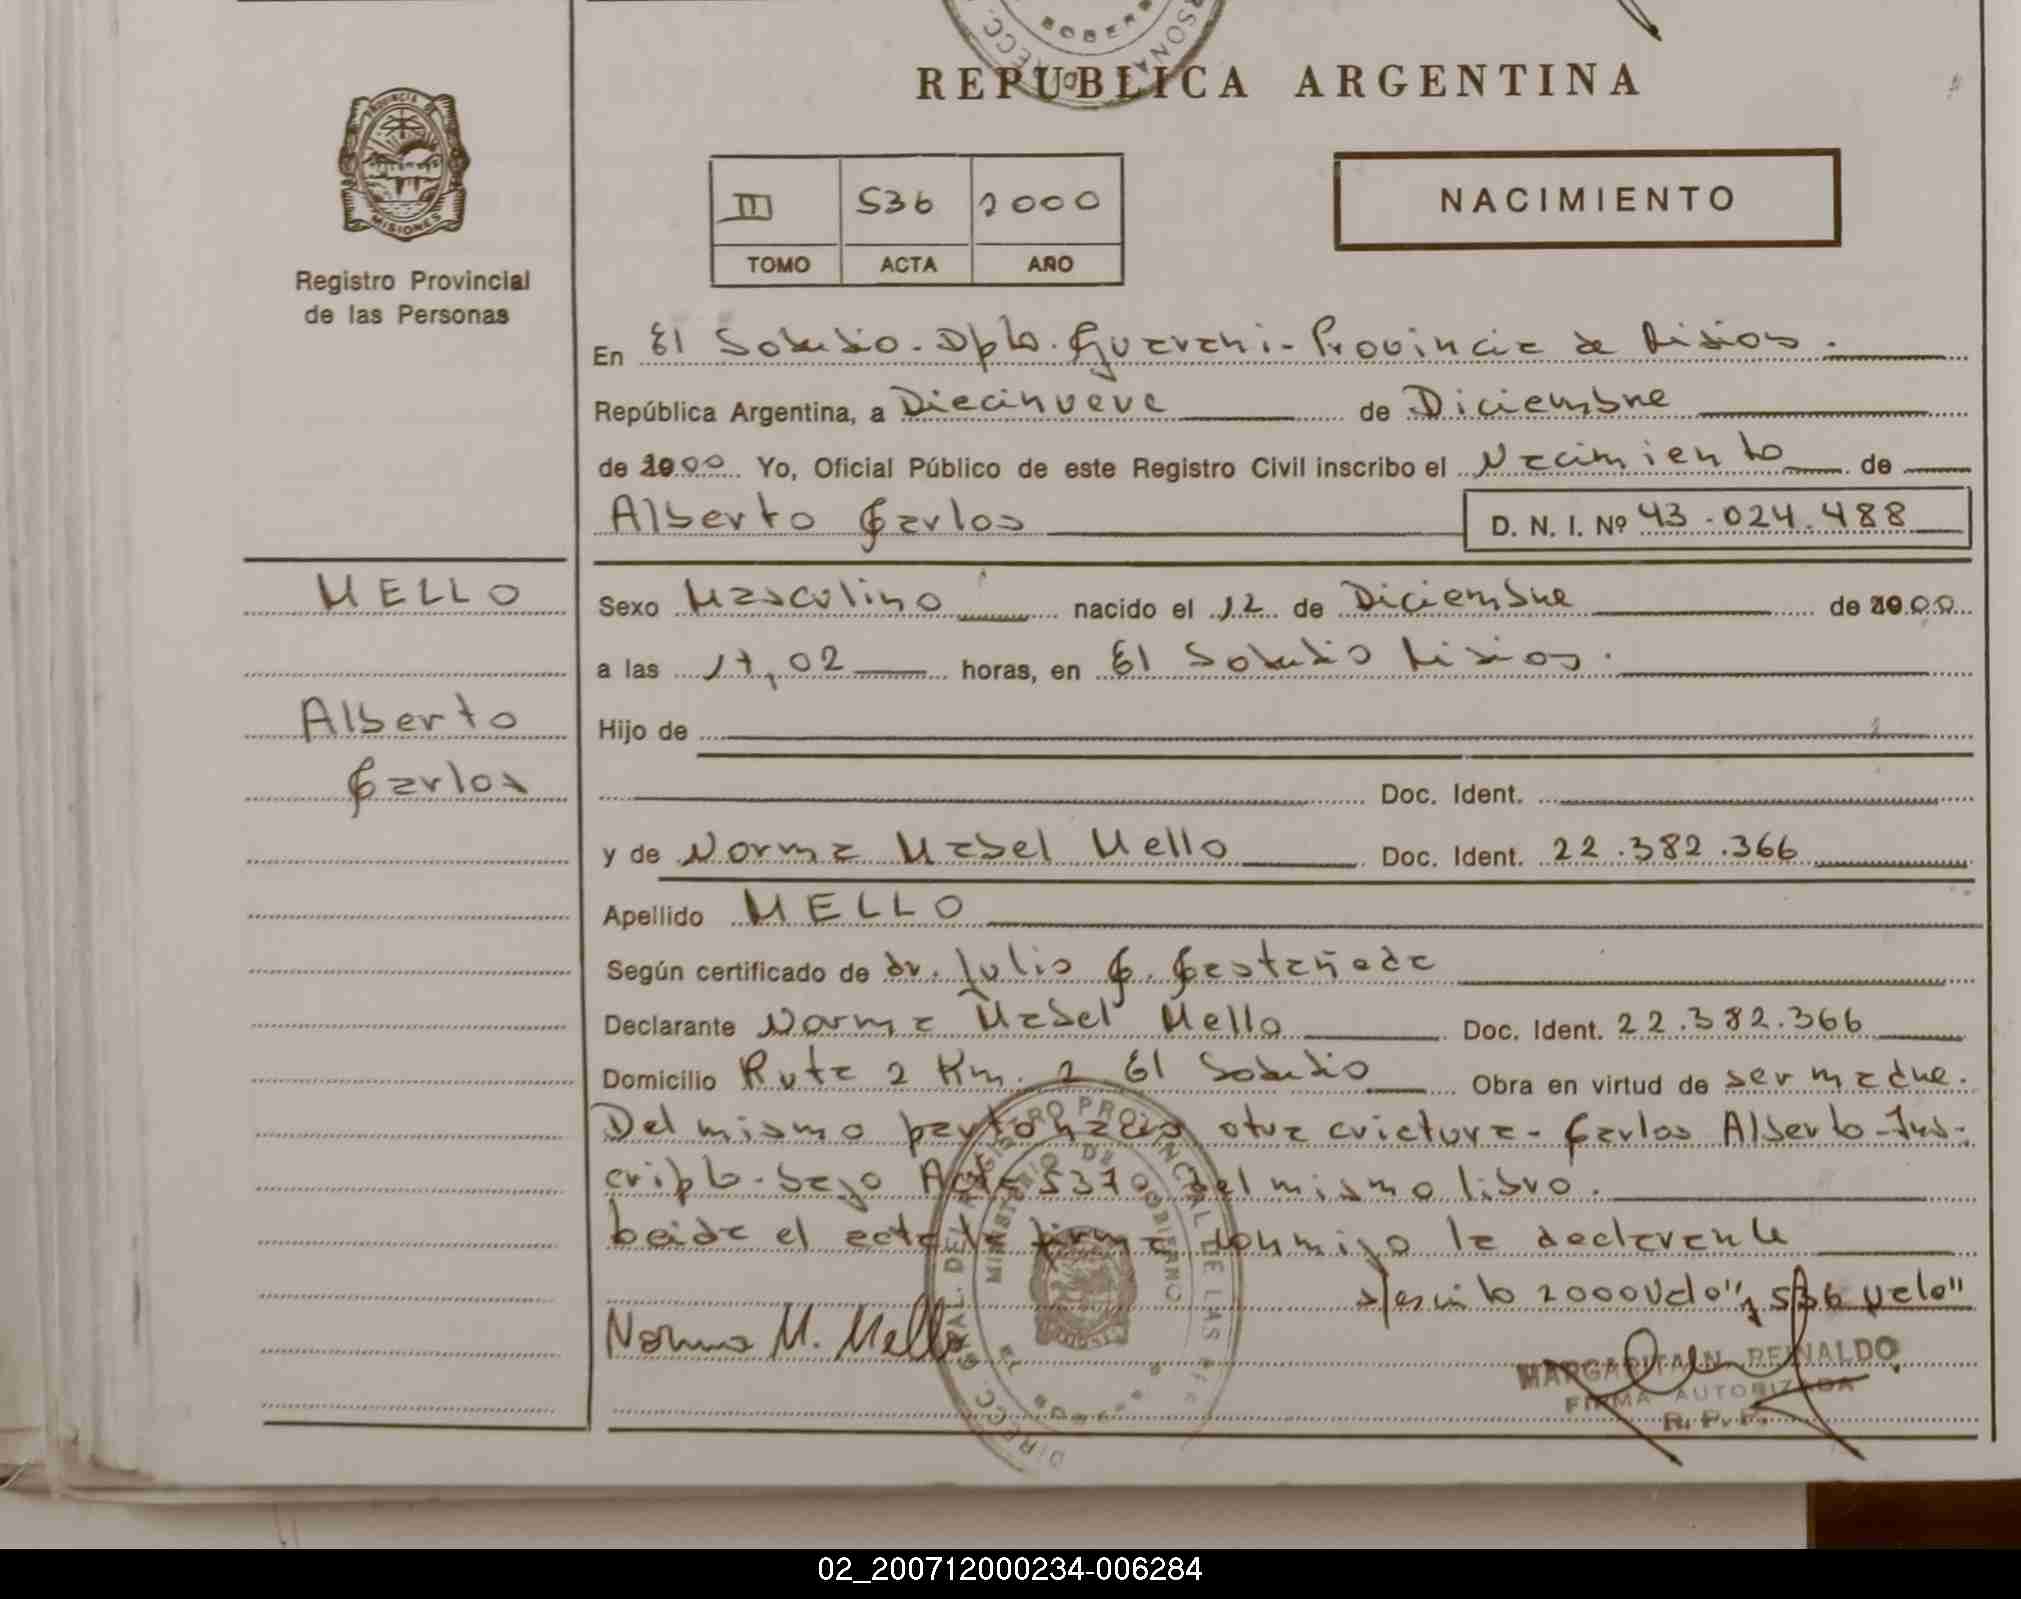 REPUBLICA ARGENTINA
PROVINCIA DE
MISIONES
Registro Provincial
de las Personas
III 536 2000
TOMO ACTA AÑO
NACIMIENTO
En El Soberbio. Dpto. Guarani- Provincia de Misiones.
República Argentina, a Diecinueve de Diciembre
de 2000 Yo, Oficial Público de este Registro Civil inscribo el Nacimiento de
Alberto Carlos D. N. I. Nº 43.024.488
MELLO
Alberto
Carlos
Sexo Masculino nacido el 12 de Diciembre de 2000
a las 17,02 horas, en El Soberbio Misiones.
Hijo de
Doc. Ident.
y de Norma Mabel Mello Doc. Ident. 22.382.366
Apellido MELLO
Según certificado de dr. Julio C. Castañeda
Declarante Norma Mabel Mello Doc. Ident. 22.382.366
Domicilio Ruta 2 Km. 2 El Soberbio Obra en virtud de ser madre.
Del mismo parto nacio otra criatura- Carlos Alberto- Ins-
cripto- bajo Acta 537 del mismo libro.
Leida el acta la firma conmigo la declarante
2000 Vale" y 536 Vale"
Norma M. Mello
MARGARITA N. REINALDO
FIRMA AUTORIZADA
R. P. P.
DIRECC. GRAL. DEL REGISTRO PROVINCIAL DE LAS
MINISTERIO DE GOBIERNO
02_200712000234-006284